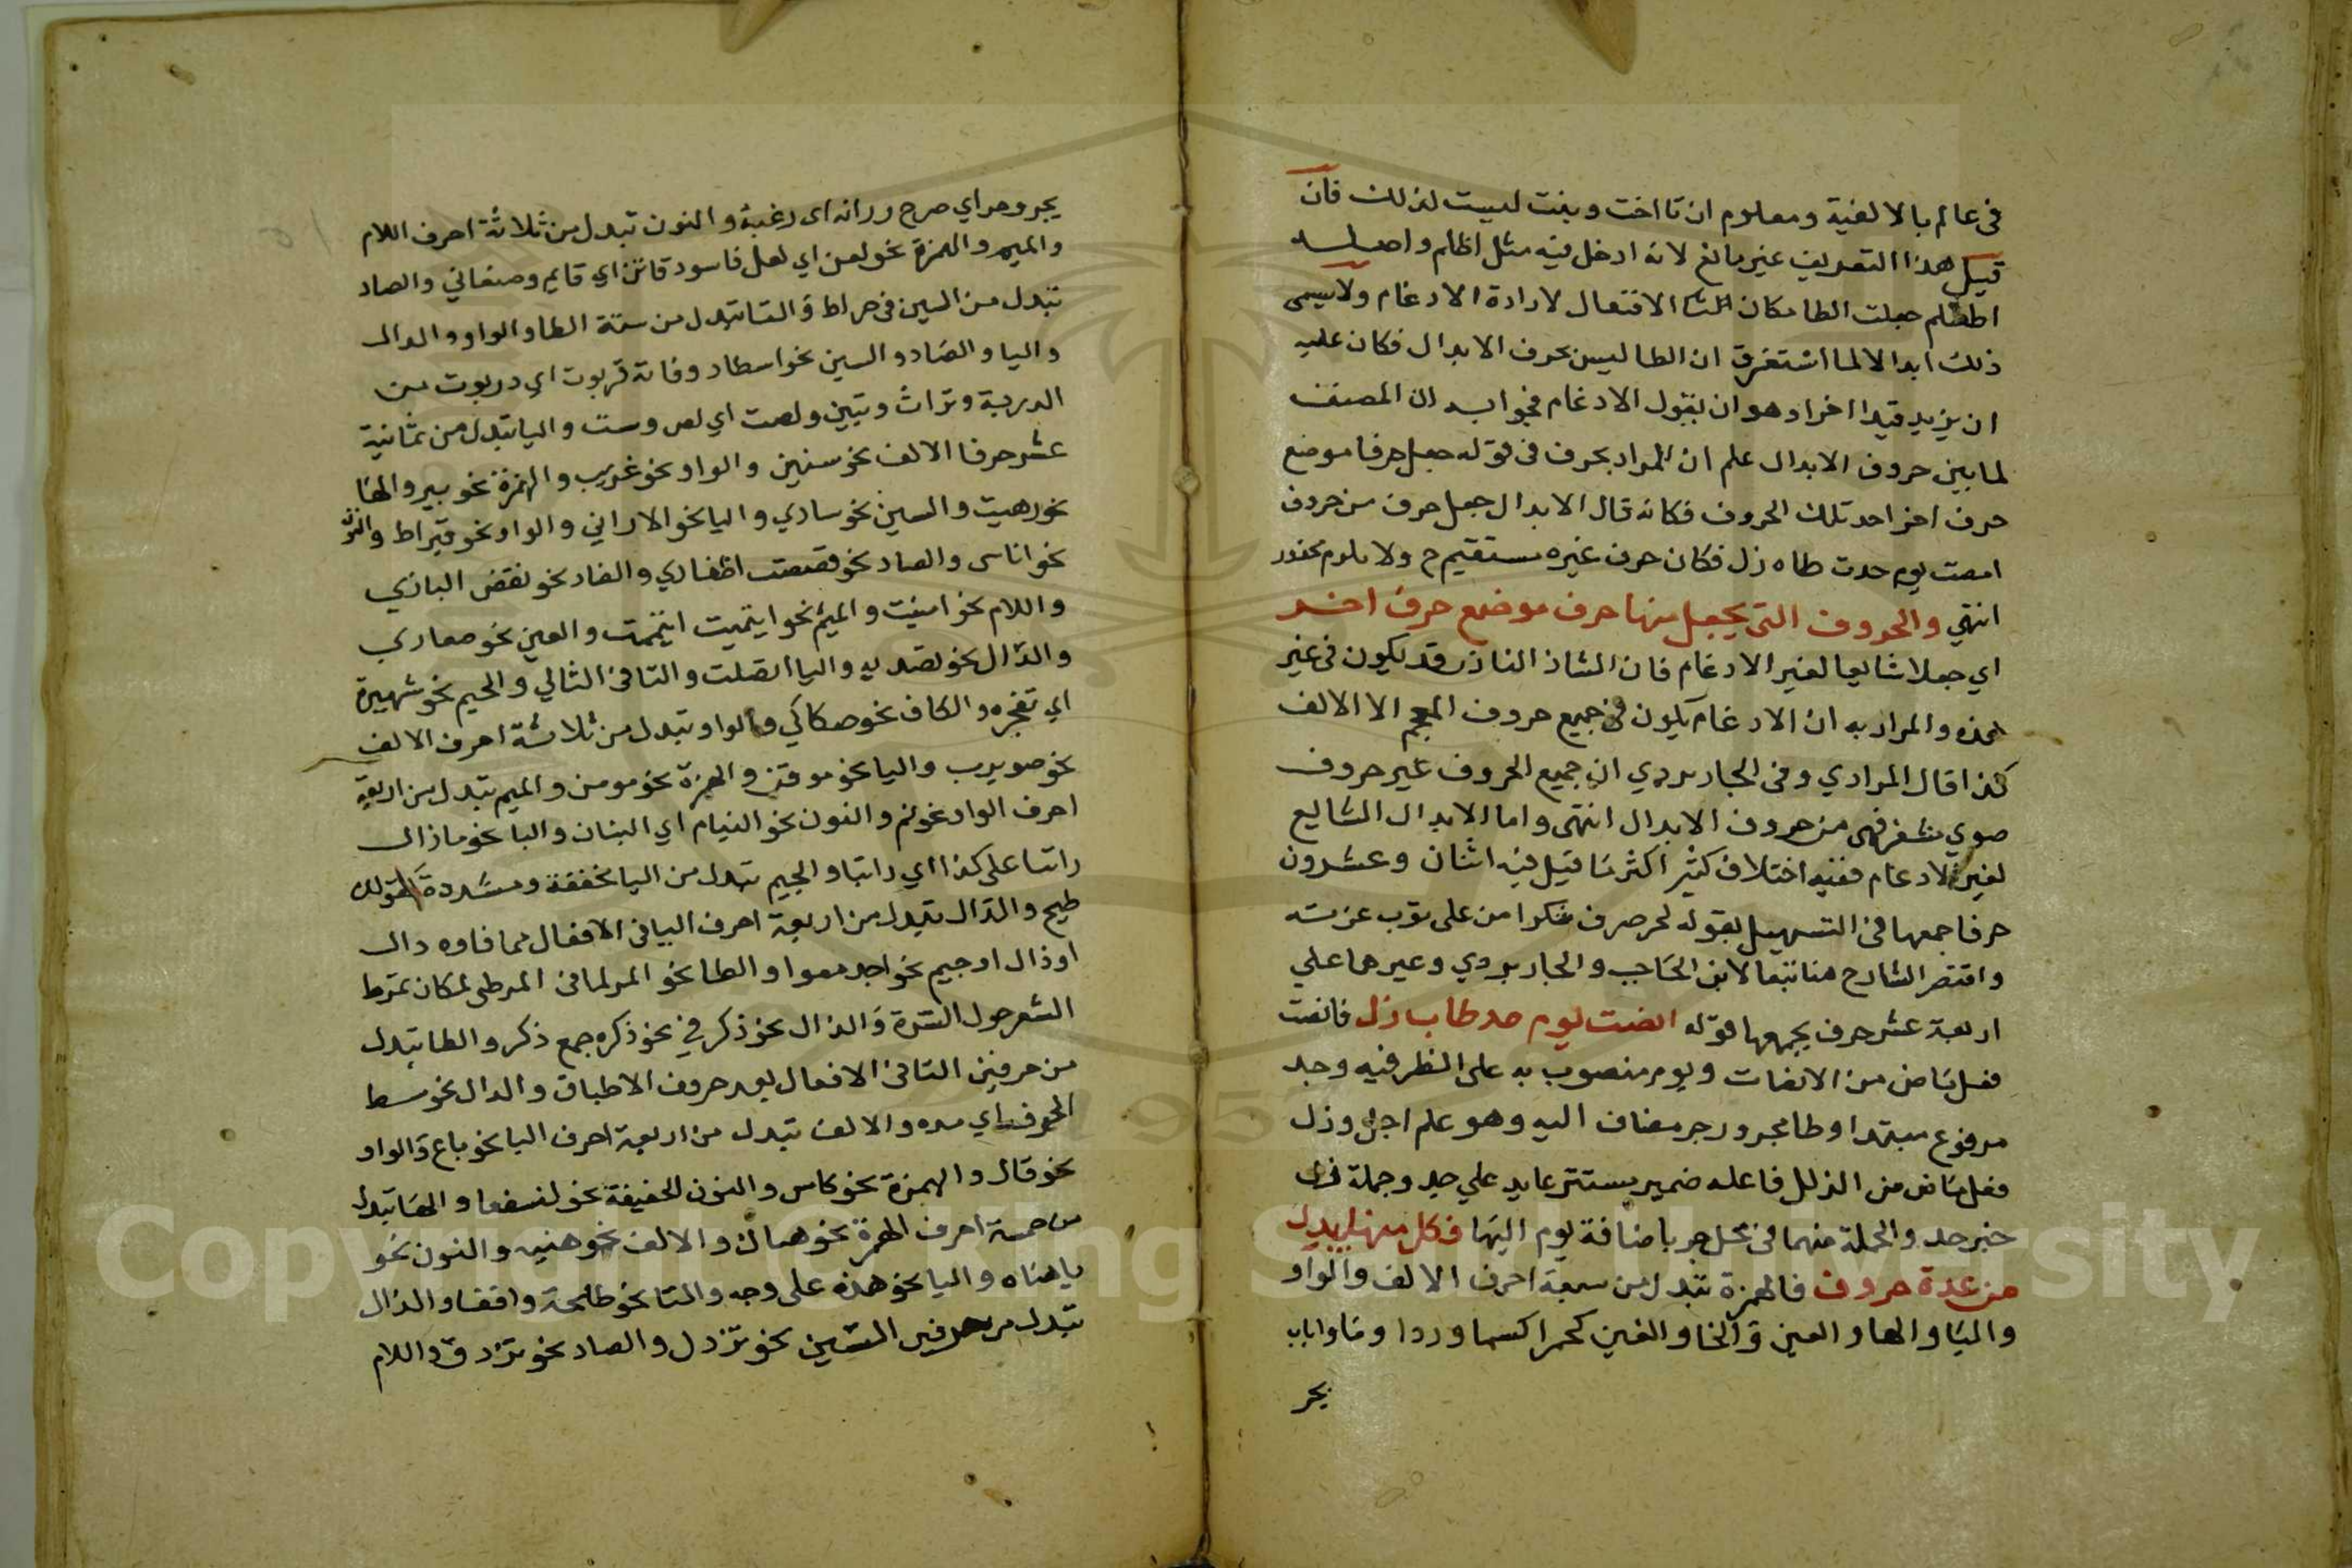 في عالم بالالفية ومعلوم ان تا اخت وبنت ليست لذلك فان
قيل هذا التعريف غير مانع لانه ادخل فيه مثل اظلم واصله
اظطلم جعلت الطا مكان التا الافتعال لارادة الادغام ولا يسمى
ذلك ابدالا لما استغرق ان الطا ليس بحرف الابدال فكان عليه
ان يزيد قيدا اخر او هو ان يقول الادغام فجوابه ان المصنف
لما بين حروف الابدال علم ان المراد بحرف في قوله جعل حرفا موضع
حرف اخر احد تلك الحروف فكانه قال الابدال جعل حرف من حروف
انصت يوم جدت طاه زل فكان حرف غيره مستقيم ح ولا يلزم محذور
انتهي والحروف التي يجعل منها حرف موضع حرف اخر
اي جعلا شايعا لغير الادغام فان الشاذ النادر قد يكون في غير
هذه والمراد به ان الادغام يكون في جميع حروف المعجم الا الالف
كذا قال المرادي وفي الجاربردي ان جميع الحروف غير حروف
ضوي مشفر فهي من حروف الابدال انتهى واما الابدال الشايع
لغير الادغام ففيه اختلاف كثير اكثر ما قيل فيه اثنان وعشرون
حرفا جمعها في التسهيل بقوله لجد صرف شكرا من على ثوب عزته
واقتصر الشارح هنا تبعا لابن الحاجب والجاربردي وغيرهما علي
اربعة عشر حرف يجمعها قوله انصت يوم جد طاب زل فانصت
فعل ماض من الانصات ويوم منصوب به على الظرفيه وجد
مرفوع مبتدا وطا مجرور جر مضاف اليه وهو علم اجل وزل
فعل ماض من الزلل فاعله ضمير يستتر عايد علي جد وجملة زل
خبر جد والجملة منهما في محل جر باضافة يوم اليها فكل منها يبدل
من عدة حروف فالهمزة تبدل من سبعة احرف الالف والواو
واليا والها والعين والخا والغين كحمرا كسما وردا وما واباب
يحر
يجر وصراي صرح ورانه اى رغبة والنون تبدل من ثلاثة احرف اللام
والميم والهمزة نحو لعن اي لعل فاسود قاتن اي قايم وصنعاني والصاد
تبدل من السين في صراط والتا تبدل من ستة الطا والواو والدال
واليا والصاد والسين نحو اسطاد وفاته تربوت اي دربوت من
الدربة وتراث وتيين ولصت اي لص وست واليا تبدل من ثمانية
عشر حرفا الالف نحو سنين والواو نحو غريب والهمزة نحو بير والها
نحو دهيت والسين نحو سادي واليا نحو الاراني والواو نحو قيراط والنون
نحو اناسي والصاد نحو قصصت اظفاري والضاد نحو نقض البازي
واللام نحو امليت والميم نحو ايتميت ايتممت والعين نحو ضفادي
والدال نحو تصديه واليا اتصلت والتا في الثالي والجيم نحو شهيرة
اي تفجره والكاف نحو صكاكي والواو تبدل من ثلاثة احرف الالف
نحو ضويرب واليا نحو موقن والهمزة نحو مومن والميم تبدل من اربعة
احرف الواو نحو فم والنون نحو البنام اي البنان والبا نحو ما زال
راتما على كذا اي راتبا والجيم تبدل من اليا مخففة ومشددة كقولك
طيج والدال تبدل من اربعة احرف التا في الافتعال مما فاوه دال
او ذال او جيم نحو اجدمعوا والطا نحو المردا في المرطى لمكان تمرط
الشعر حول السرة والذال نحو ذكر في نحو ذكره جمع ذكر والطا تبدل
من حرفين التا في الافتعال بعد حروف الاطباق والدال نحو مط
الحرف اي مده والالف تبدل من اربعة احرف اليا نحو باع والواو
نحو قال والهمزة نحو كاس والنون الخفيفة نحو لنسفعا والها تبدل
من خمسة احرف الهمزة نحو هماك والالف نحو هنيه والنون نحو
يا هناه واليا نحو هذه على وجه والتا نحو طلحة وقفا والدال
تبدل من حرفين السين نحو يزدل والصاد نحو يزدق واللام